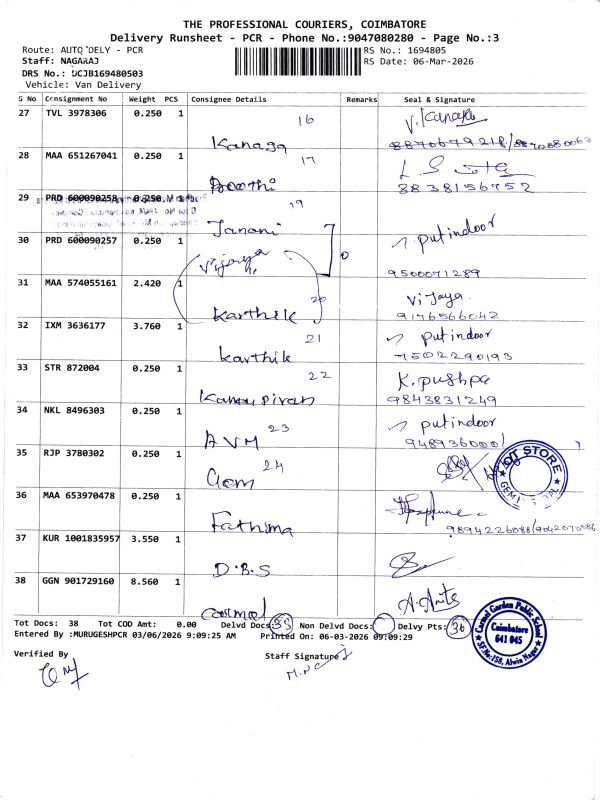 THE PROFESSIONAL COURIERS, COIMBATORE
Delivery Runsheet - PCR - Phone No.:9047080280 - Page No.:3
Route: AUTO DELY - PCR
RS No.: 1694805
Staff: NAGARAJ
RS Date: 06-Mar-2026
DRS No.: DCJB169480503
Vehicle: Van Delivery
S No Consignment No Weight PCS Consignee Details Remarks Seal & Signature
27 TVL 3978306 0.250 1 16
Kanaga
V. Kanaga
28 MAA 651267041 0.250 1 17
8838156752
29 PRD 600090258 0.250 1 19
Janani
30 PRD 600090257 0.250 1
putindoor
Vijaya
9500071289
31 MAA 574055161 2.420 1 20
Karthik
Vijaya
9176566042
32 IXM 3636177 3.760 1 21
Karthik
putindoor
7502290193
33 STR 872004 0.250 1 22
K. pushpa
9843831249
34 NKL 8496303 0.250 1 23
AVM
putindoor
35 RJP 3780302 0.250 1 24
Gem
STORE
36 MAA 653970478 0.250 1
Fathima
9894226088/9042070086
37 KUR 1001835957 3.550 1
D.B.S
38 GGN 901729160 8.560 1
Carmel
Tot Docs: 38 Tot COD Amt: 0.00 Delvd Docs: 38 Non Delvd Docs: Delvy Pts: 36
Entered By :MURUGESHPCR 03/06/2026 9:09:25 AM Printed On: 06-03-2026 09:09:29
Verified By
Staff Signature
Carmel Garden Public School
Coimbatore
641 045
S.F.No:158, Alwin Nagar